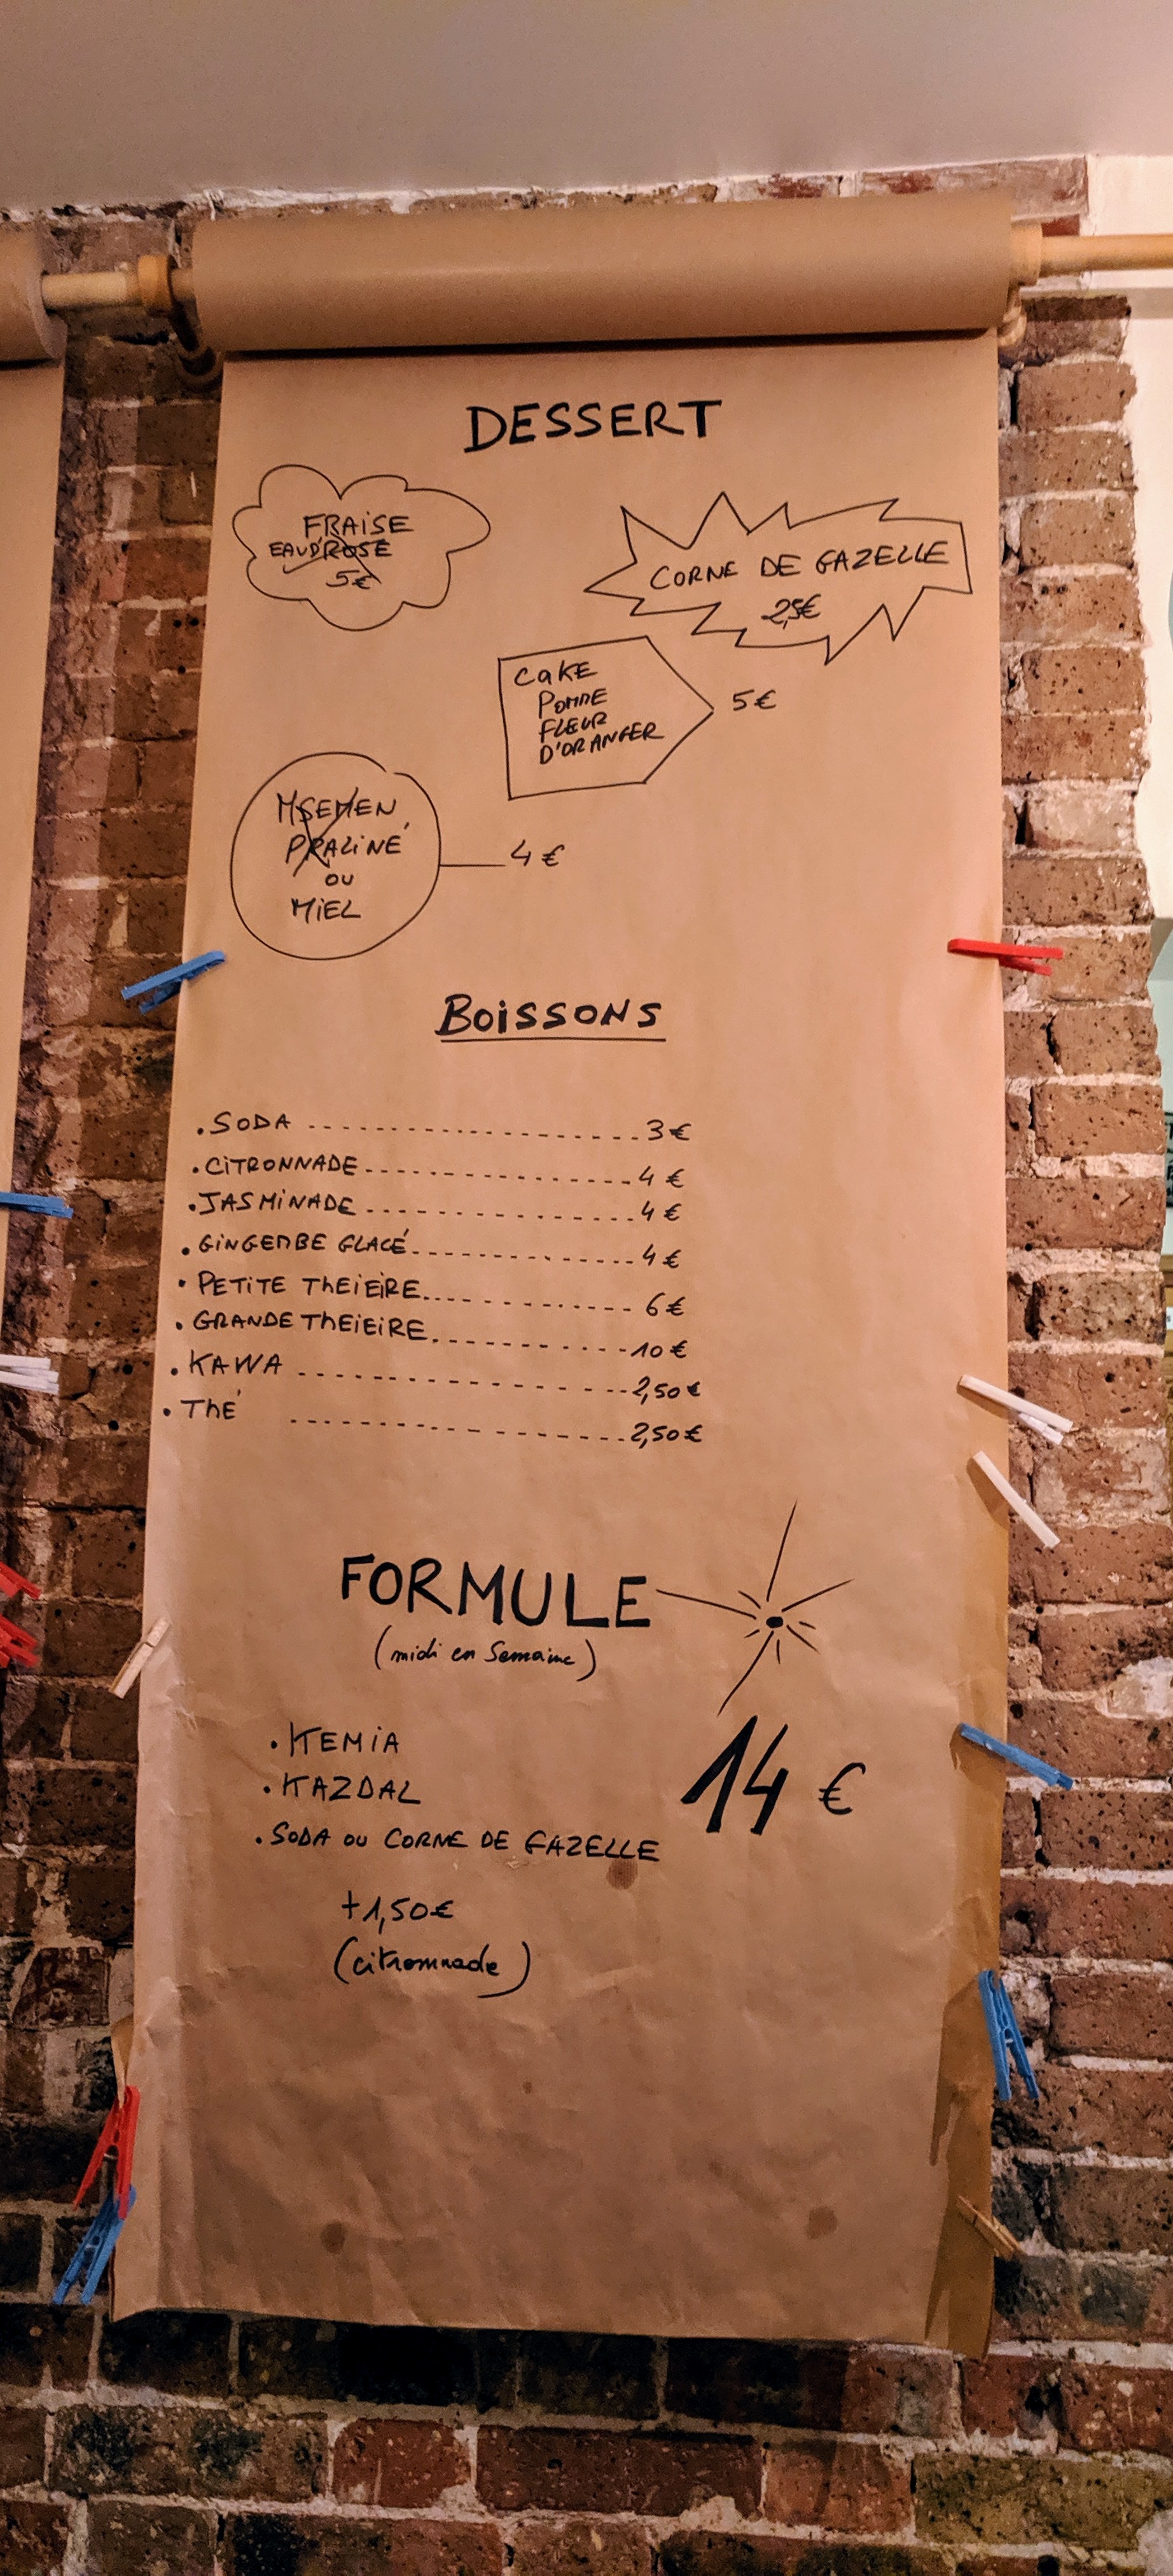 DESSERT
FRAISE
EAU D'ROSE
5€
CORNE DE GAZELLE
2,5€
CAKE
POMME
FLEUR
D'ORANGER
5€
MSEMEN
PRALINÉ
OU
MIEL
4€
BOISSONS
.SODA ..................... 3€
.CITRONNADE ................. 4€
.JASMINADE ................. 4€
.GINGEMBE GLACÉ .............. 4€
.PETITE THEIEIRE .............. 6€
.GRANDE THEIEIRE ............. 10€
.KAWA ..................... 2,50€
.THÉ ..................... 2,50€
FORMULE
(midi en semaine)
.KEMIA
.KAZDAL
14€
.SODA OU CORNE DE GAZELLE
+1,50€
(citronnade)